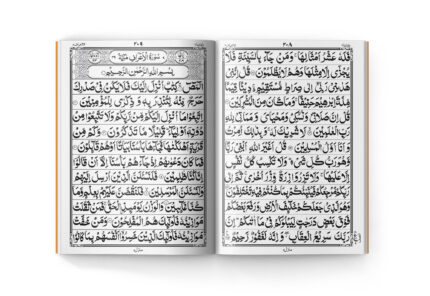 فَلَهٗ عَشْرُ اَمْثَالِهَا وَمَنْ جَآءَ بِالسَّيِّئَةِ فَلَا
يُجْزٰٓى اِلَّا مِثْلَهَا وَهُمْ لَا يُظْلَمُوْنَ قُلْ اِنَّنِيْ
هَدٰىنِيْ رَبِّيْٓ اِلٰى صِرَاطٍ مُّسْتَقِيْمٍ دِيْنًا قِيَمًا
مِّلَّةَ اِبْرٰهِيْمَ حَنِيْفًا وَمَا كَانَ مِنَ الْمُشْرِكِيْنَ
قُلْ اِنَّ صَلَاتِيْ وَنُسُكِيْ وَمَحْيَايَ وَمَمَاتِيْ لِلّٰهِ
رَبِّ الْعٰلَمِيْنَ لَا شَرِيْكَ لَهٗ وَبِذٰلِكَ اُمِرْتُ
وَاَنَا اَوَّلُ الْمُسْلِمِيْنَ قُلْ اَغَيْرَ اللّٰهِ اَبْغِيْ رَبًّا
وَّهُوَ رَبُّ كُلِّ شَيْءٍ وَلَا تَكْسِبُ كُلُّ نَفْسٍ
اِلَّا عَلَيْهَا وَلَا تَزِرُ وَازِرَةٌ وِّزْرَ اُخْرٰى ثُمَّ اِلٰى
رَبِّكُمْ مَّرْجِعُكُمْ فَيُنَبِّئُكُمْ بِمَا كُنْتُمْ فِيْهِ تَخْتَلِفُوْنَ
وَهُوَ الَّذِيْ جَعَلَكُمْ خَلٰٓئِفَ الْاَرْضِ وَرَفَعَ بَعْضَكُمْ
فَوْقَ بَعْضٍ دَرَجٰتٍ لِّيَبْلُوَكُمْ فِيْ مَآ اٰتٰىكُمْ اِنَّ
رَبَّكَ سَرِيْعُ الْعِقَابِ وَاِنَّهٗ لَغَفُوْرٌ رَّحِيْمٌ
سُوْرَةُ الْاَعْرَافِ مَكِّيَّةٌ
بِسْمِ اللّٰهِ الرَّحْمٰنِ الرَّحِيْمِ
الٓمّٓصٓ كِتٰبٌ اُنْزِلَ اِلَيْكَ فَلَا يَكُنْ فِيْ صَدْرِكَ
حَرَجٌ مِّنْهُ لِتُنْذِرَ بِهٖ وَذِكْرٰى لِلْمُؤْمِنِيْنَ
اِتَّبِعُوْا مَآ اُنْزِلَ اِلَيْكُمْ مِّنْ رَّبِّكُمْ وَلَا تَتَّبِعُوْا مِنْ
دُوْنِهٖٓ اَوْلِيَآءَ قَلِيْلًا مَّا تَذَكَّرُوْنَ وَكَمْ مِّنْ
قَرْيَةٍ اَهْلَكْنٰهَا فَجَآءَهَا بَاْسُنَا بَيَاتًا اَوْ هُمْ قَآئِلُوْنَ
فَمَا كَانَ دَعْوٰىهُمْ اِذْ جَآءَهُمْ بَاْسُنَآ اِلَّآ اَنْ قَالُوْٓا
اِنَّا كُنَّا ظٰلِمِيْنَ فَلَنَسْـَٔلَنَّ الَّذِيْنَ اُرْسِلَ اِلَيْهِمْ
وَلَنَسْـَٔلَنَّ الْمُرْسَلِيْنَ فَلَنَقُصَّنَّ عَلَيْهِمْ بِعِلْمٍ وَّمَا
كُنَّا غَآئِبِيْنَ وَالْوَزْنُ يَوْمَئِذِ ۨالْحَقُّ فَمَنْ ثَقُلَتْ
مَوَازِيْنُهٗ فَاُولٰٓئِكَ هُمُ الْمُفْلِحُوْنَ وَمَنْ خَفَّتْ
مَوَازِيْنُهٗ فَاُولٰٓئِكَ الَّذِيْنَ خَسِرُوْٓا اَنْفُسَهُمْ بِمَا كَانُوْا